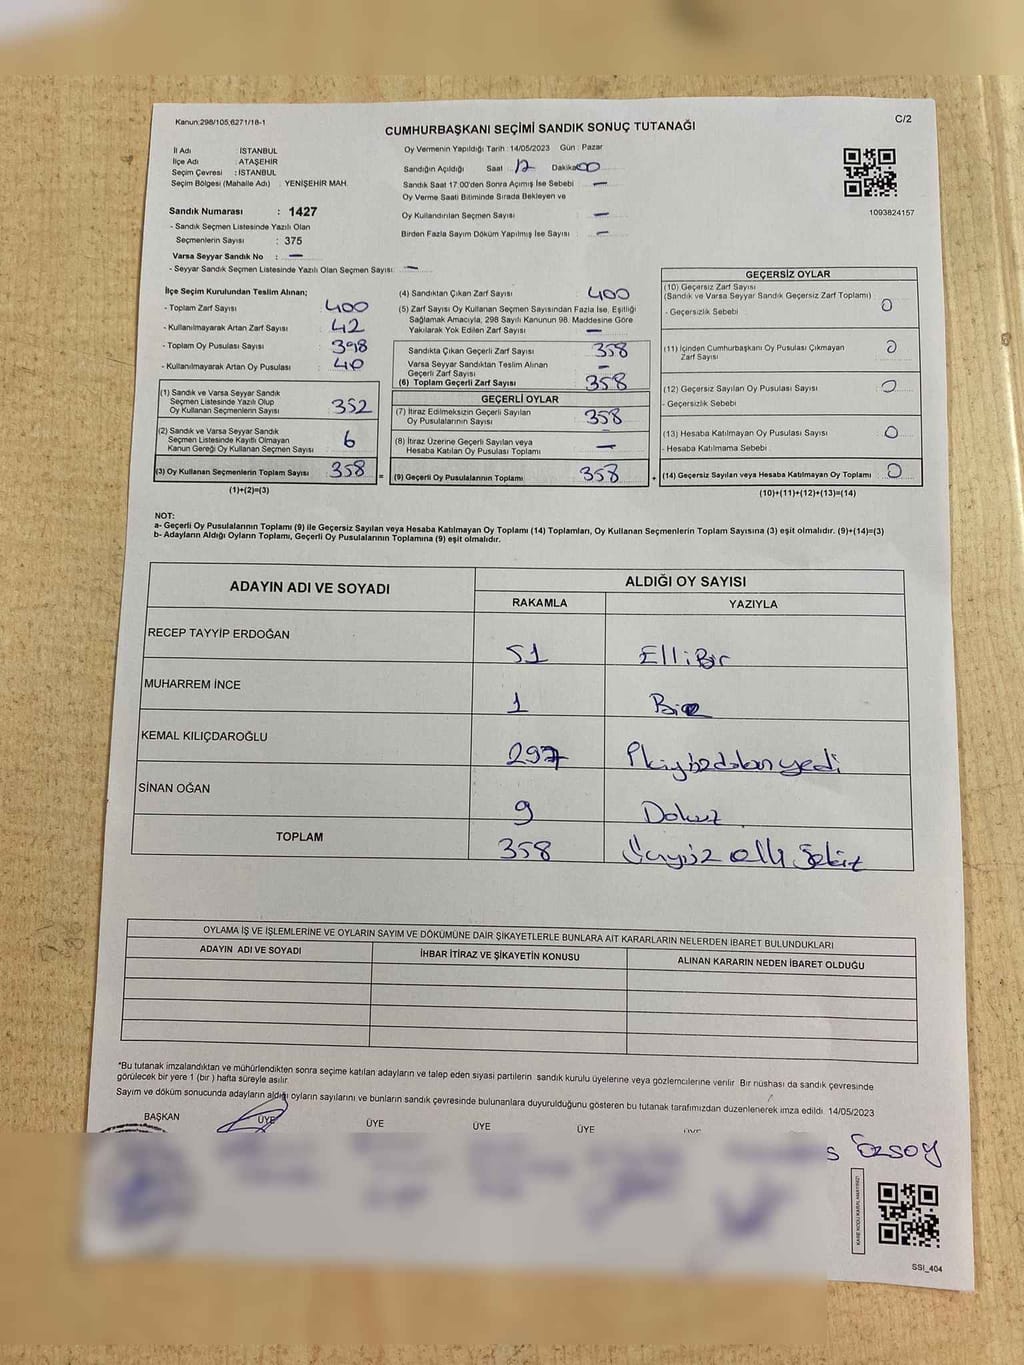 Kanun:298/105,6271/18-1
C/2
CUMHURBAŞKANI SEÇİMİ SANDIK SONUÇ TUTANAĞI
İl Adı : İSTANBUL
İlçe Adı : ATAŞEHİR
Seçim Çevresi : İSTANBUL
Seçim Bölgesi (Mahalle Adı) : YENİŞEHİR MAH.
Sandık Numarası : 1427
- Sandık Seçmen Listesinde Yazılı Olan
Seçmenlerin Sayısı : 375
Varsa Seyyar Sandık No : —
- Seyyar Sandık Seçmen Listesinde Yazılı Olan Seçmen Sayısı —
Oy Vermenin Yapıldığı Tarih : 14/05/2023 Gün : Pazar
Sandığın Açıldığı Saat 17 Dakika 00
Sandık Saat 17:00'den Sonra Açımış İse Sebebi —
Oy Verme Saati Bitiminde Sırada Bekleyen ve
Oy Kullandırılan Seçmen Sayısı —
Birden Fazla Sayım Döküm Yapılmış İse Sayısı —
1093824157
İlçe Seçim Kurulundan Teslim Alınan;
- Toplam Zarf Sayısı 400
- Kullanılmayarak Artan Zarf Sayısı 42
- Toplam Oy Pusulası Sayısı 398
- Kullanılmayarak Artan Oy Pusulası 40
(1) Sandık ve Varsa Seyyar Sandık
Seçmen Listesinde Yazılı Olup
Oy Kullanan Seçmenlerin Sayısı 352
(2) Sandık ve Varsa Seyyar Sandık
Seçmen Listesinde Kayıtlı Olmayan
Kanun Gereği Oy Kullanan Seçmen Sayısı 6
(3) Oy Kullanan Seçmenlerin Toplam Sayısı 358
(1)+(2)=(3)
(4) Sandıktan Çıkan Zarf Sayısı 400
(5) Zarf Sayısı Oy Kullanan Seçmen Sayısından Fazla İse, Eşitliği
Sağlamak Amacıyla, 298 Sayılı Kanunun 98. Maddesine Göre
Yakılarak Yok Edilen Zarf Sayısı —
Sandıkta Çıkan Geçerli Zarf Sayısı 358
Varsa Seyyar Sandıktan Teslim Alınan
Geçerli Zarf Sayısı —
(6) Toplam Geçerli Zarf Sayısı 358
GEÇERLİ OYLAR
(7) İtiraz Edilmeksizin Geçerli Sayılan
Oy Pusulalarının Sayısı 358
(8) İtiraz Üzerine Geçerli Sayılan veya
Hesaba Katılan Oy Pusulası Toplamı —
= (9) Geçerli Oy Pusulalarının Toplamı 358
GEÇERSİZ OYLAR
(10) Geçersiz Zarf Sayısı
(Sandık ve Varsa Seyyar Sandık Geçersiz Zarf Toplamı)
- Geçersizlik Sebebi 0
(11) İçinden Cumhurbaşkanı Oy Pusulası Çıkmayan
Zarf Sayısı 0
(12) Geçersiz Sayılan Oy Pusulası Sayısı 0
- Geçersizlik Sebebi
(13) Hesaba Katılmayan Oy Pusulası Sayısı 0
- Hesaba Katılmama Sebebi
+ (14) Geçersiz Sayılan veya Hesaba Katılmayan Oy Toplamı 0
(10)+(11)+(12)+(13)=(14)
NOT:
a- Geçerli Oy Pusulalarının Toplamı (9) ile Geçersiz Sayılan veya Hesaba Katılmayan Oy Toplamı (14) Toplamları, Oy Kullanan Seçmenlerin Toplam Sayısına (3) eşit olmalıdır. (9)+(14)=(3)
b- Adayların Aldığı Oyların Toplamı, Geçerli Oy Pusulalarının Toplamına (9) eşit olmalıdır.
ADAYIN ADI VE SOYADI
ALDIĞI OY SAYISI
RAKAMLA YAZIYLA
RECEP TAYYİP ERDOĞAN 51 Elli Bir
MUHARREM İNCE 1 Bir
KEMAL KILIÇDAROĞLU 297 İkiyüzdoksanyedi
SİNAN OĞAN 9 Dokuz
TOPLAM 358 Üçyüz elli Sekiz
OYLAMA İŞ VE İŞLEMLERİNE VE OYLARIN SAYIM VE DÖKÜMÜNE DAİR ŞİKAYETLERLE BUNLARA AİT KARARLARIN NELERDEN İBARET BULUNDUKLARI
ADAYIN ADI VE SOYADI İHBAR İTİRAZ VE ŞİKAYETİN KONUSU ALINAN KARARIN NEDEN İBARET OLDUĞU
*Bu tutanak imzalandıktan ve mühürlendikten sonra seçime katılan adayların ve talep eden siyasi partilerin sandık kurulu üyelerine veya gözlemcilerine verilir. Bir nüshası da sandık çevresinde
görülecek bir yere 1 (bir ) hafta süreyle asılır.
Sayım ve döküm sonucunda adayların aldığı oyların sayılarını ve bunların sandık çevresinde bulunanlara duyurulduğunu gösteren bu tutanak tarafımızdan düzenlenerek imza edildi. 14/05/2023
BAŞKAN ÜYE ÜYE ÜYE ÜYE
s Özsoy
SSI_404